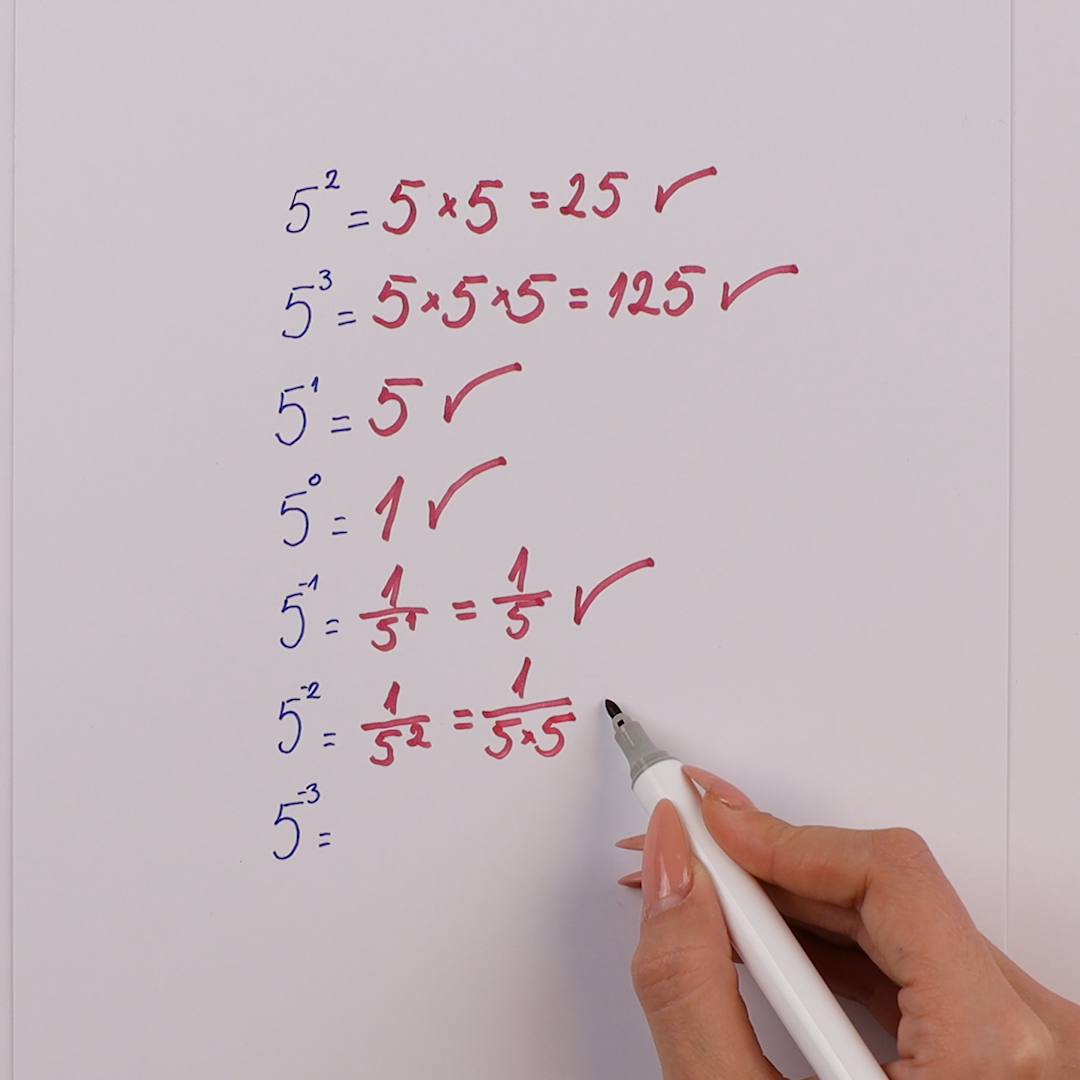 5² = 5×5 = 25 ✓
5³ = 5×5×5 = 125 ✓
5¹ = 5 ✓
5⁰ = 1 ✓
5⁻¹ = 1/5¹ = 1/5 ✓
5⁻² = 1/5² = 1/5×5
5⁻³ =